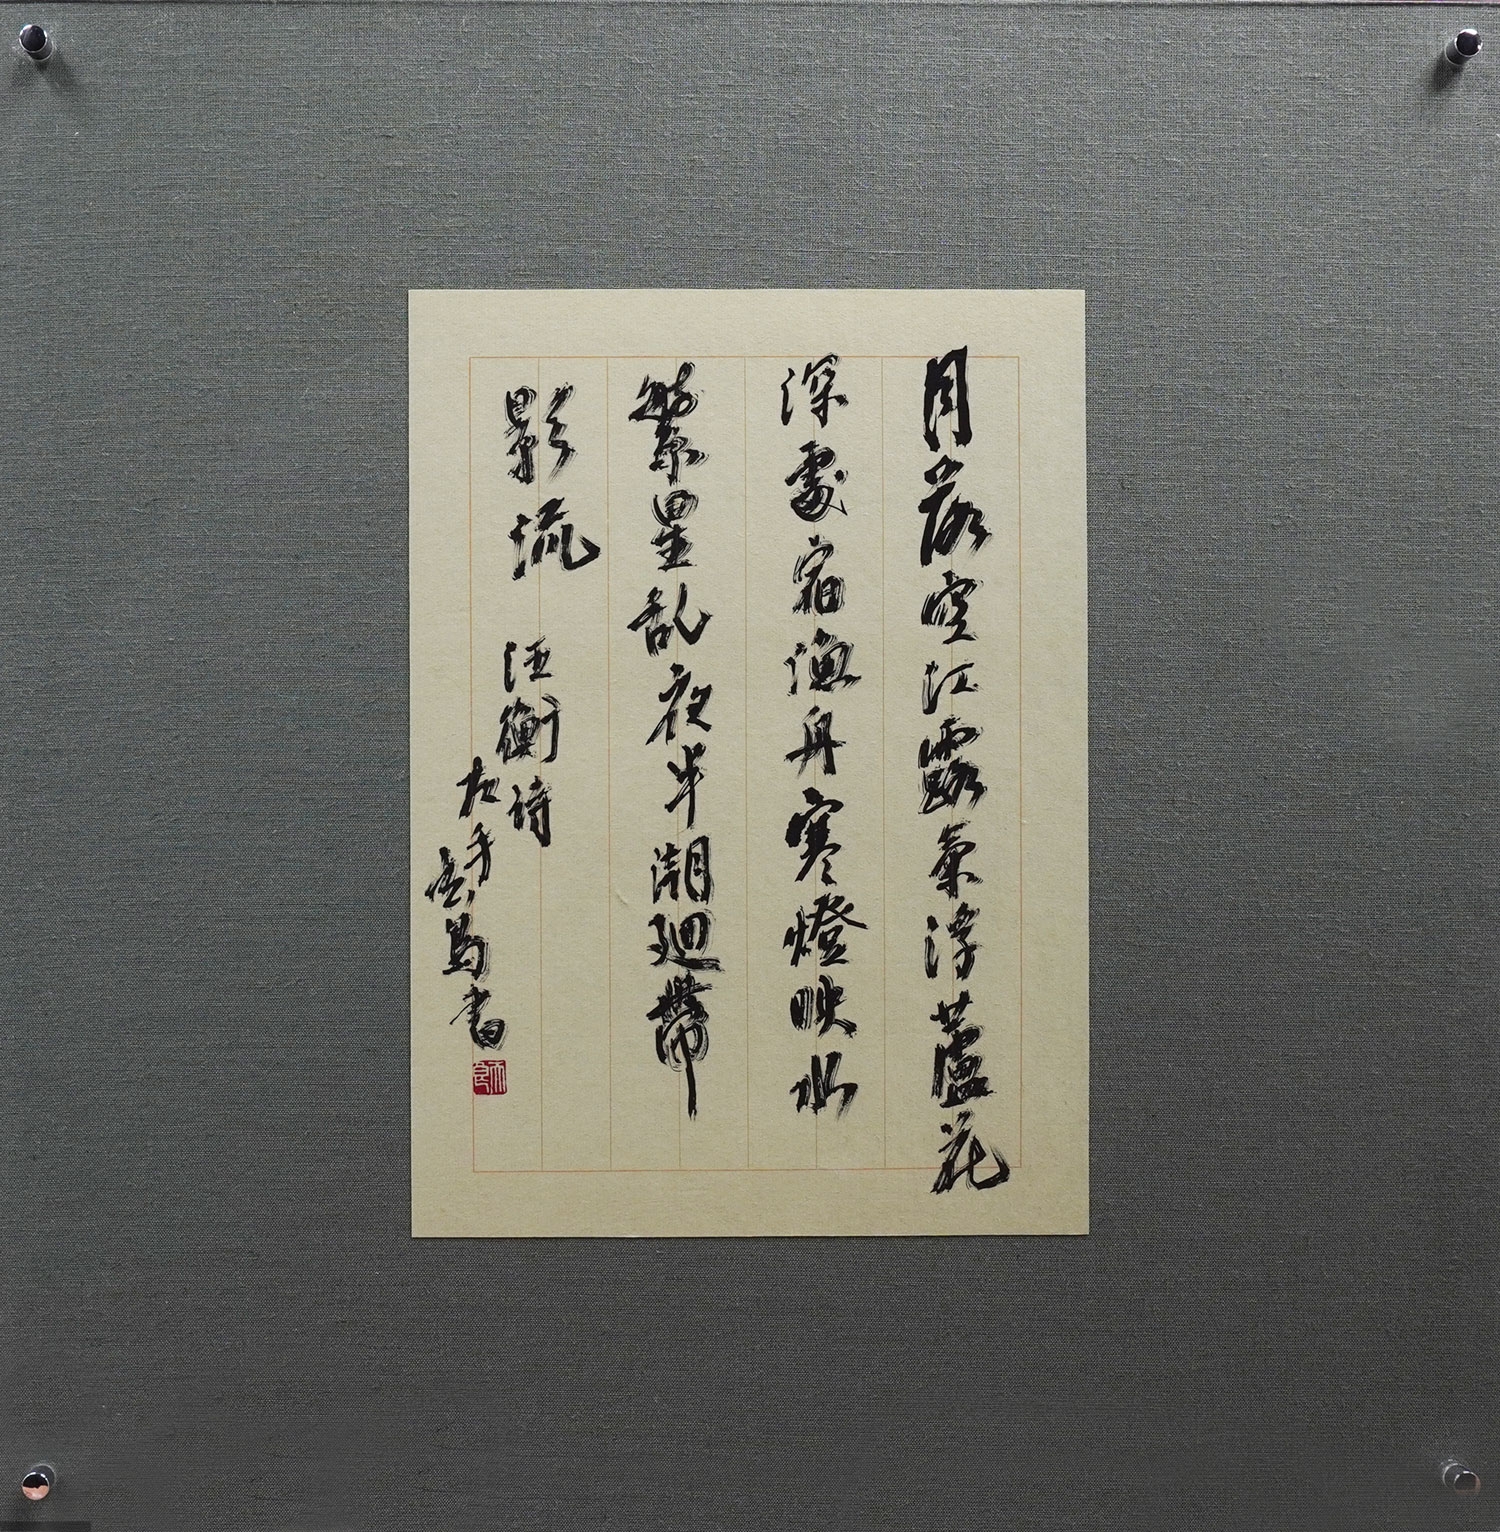 月落空江露氣浮蘆花
深處宿漁舟寒燈映水
繁星乱夜半潮廻帶
影流
汪衡诗
左手
书